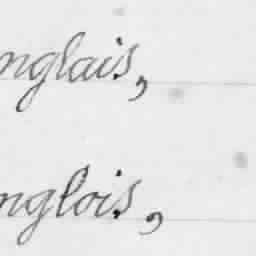 nglais,
nglois,